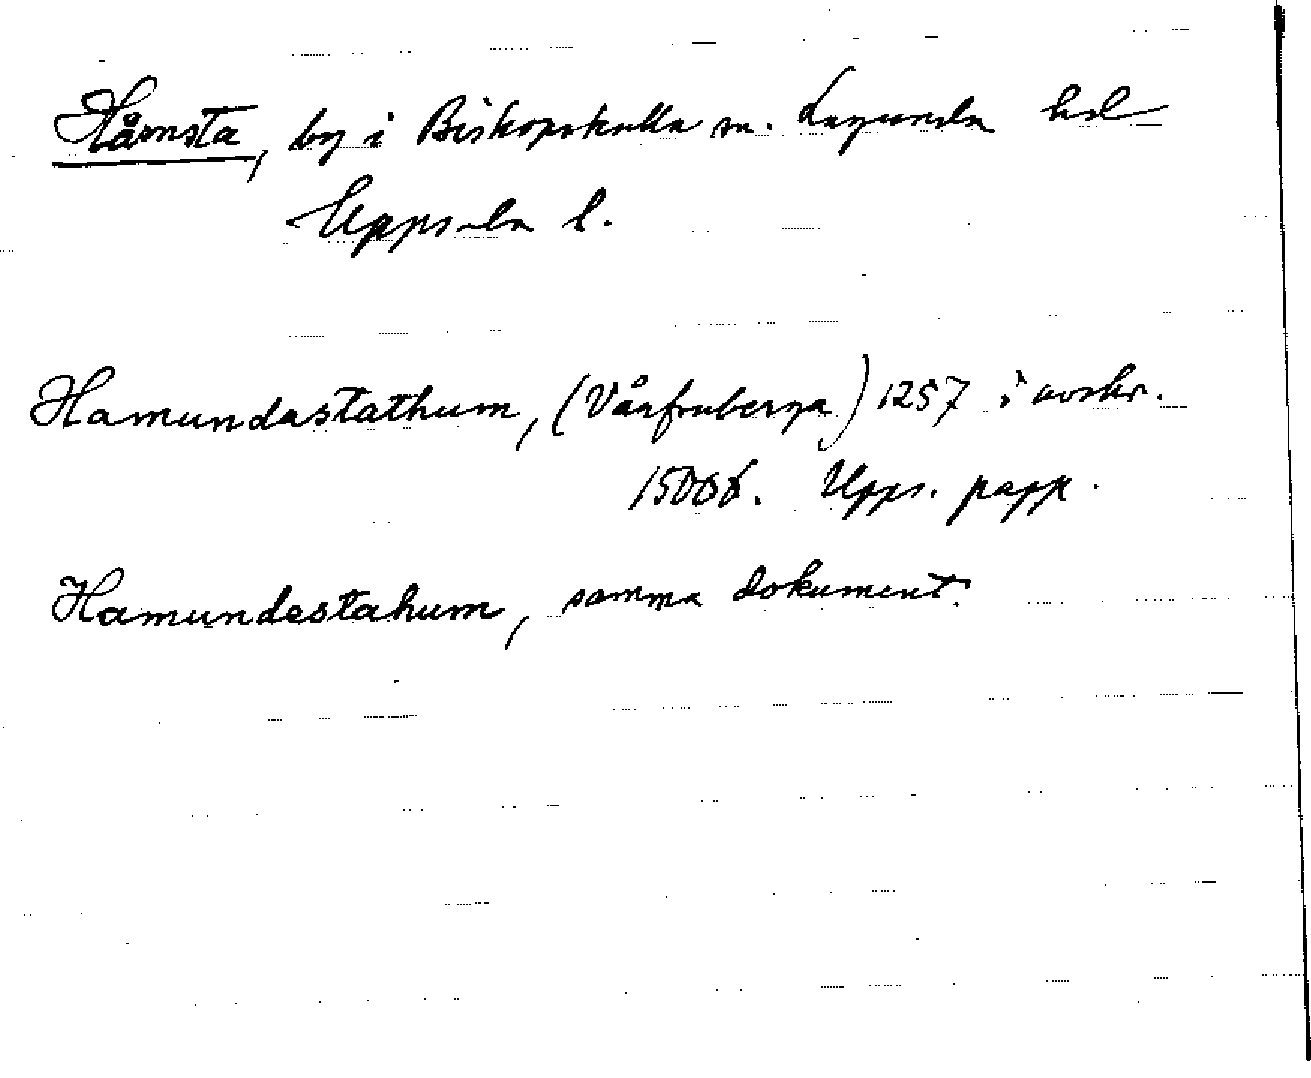 Håmsta, by i Biskopskulla sn. Lagunda hd
Uppsala l.
Hamundastathum, (Vårfruberga) 1257 i avskr.
1500b. Upps. papp.
Hamundestahum, samma dokument.